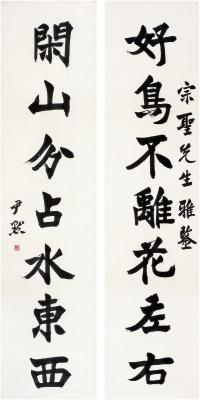 好鳥不離花左右
宗聖先生雅鑒
閑山分占水東西
尹默